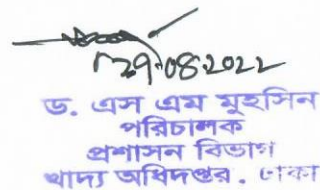 29.08.2022
ড. এস এম মুহসিন
পরিচালক
প্রশাসন বিভাগ
খাদ্য অধিদপ্তর, ঢাকা